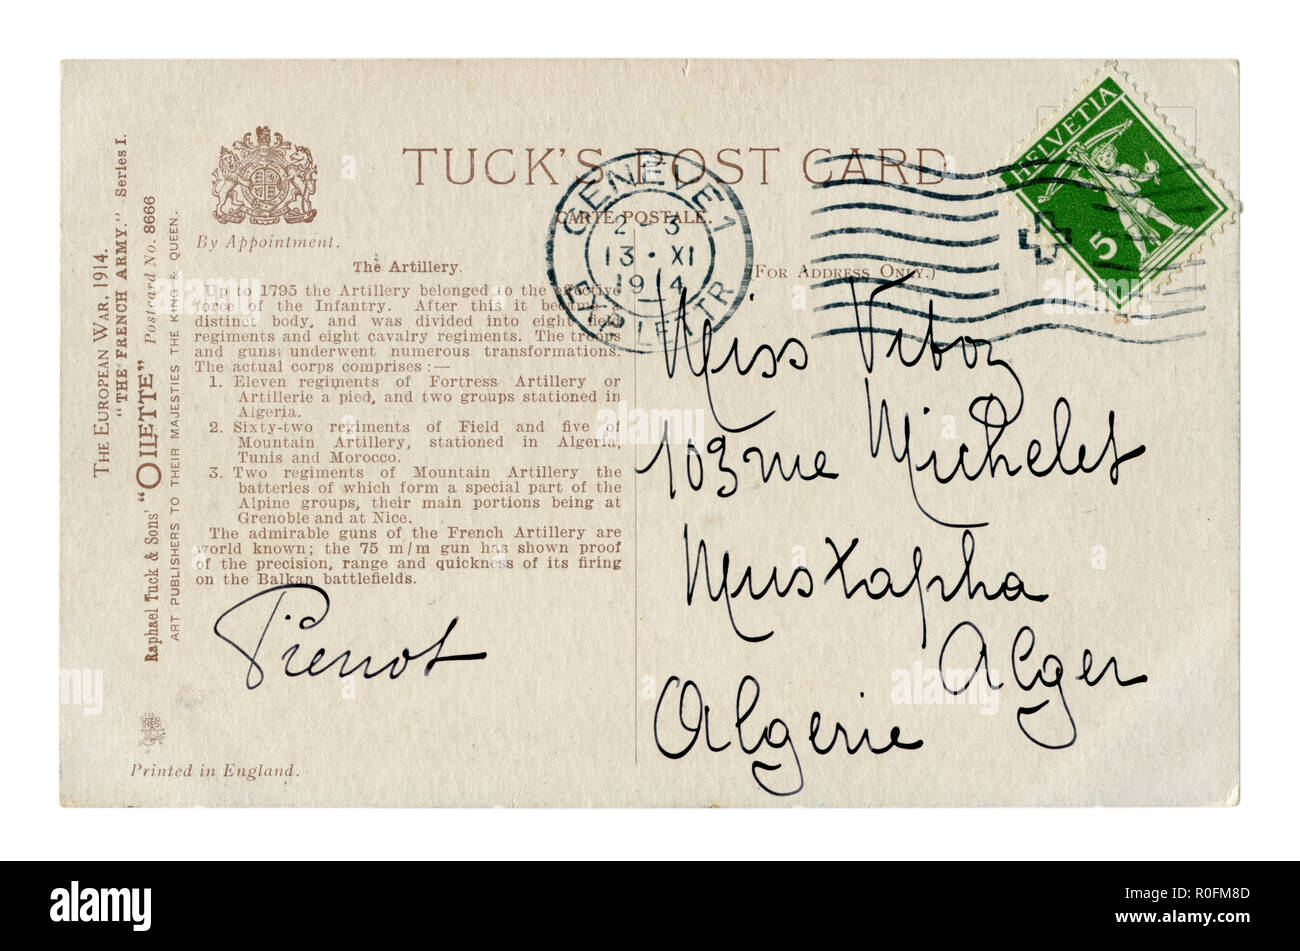 THE EUROPEAN WAR, 1914.
"THE FRENCH ARMY." Series I.
Raphael Tuck & Sons' "OIlETTE" Postcard No. 8666
ART PUBLISHERS TO THEIR MAJESTIES THE KING & QUEEN.
By Appointment.
TUCK'S POST CARD
CARTE POSTALE.
(FOR ADDRESS ONLY.)
GENÈVE 1
2-3
13·XI
1914
LETTR
HELVETIA
5
The Artillery.
Up to 1795 the Artillery belonged to the effective
force of the Infantry. After this it became a
distinct body, and was divided into eight field
regiments and eight cavalry regiments. The troops
and guns underwent numerous transformations.
The actual corps comprises :—
1. Eleven regiments of Fortress Artillery or
Artillerie a pied, and two groups stationed in
Algeria.
2. Sixty-two regiments of Field and five of
Mountain Artillery, stationed in Algeria,
Tunis and Morocco.
3. Two regiments of Mountain Artillery the
batteries of which form a special part of the
Alpine groups, their main portions being at
Grenoble and at Nice.
The admirable guns of the French Artillery are
world known; the 75 m/m gun has shown proof
of the precision, range and quickness of its firing
on the Balkan battlefields.
Pierrot
Printed in England.
Miss Viboz
103 rue Michelet
Mustapha
Alger
Algérie
alamy
www.alamy.com
Image ID: R0FM8D